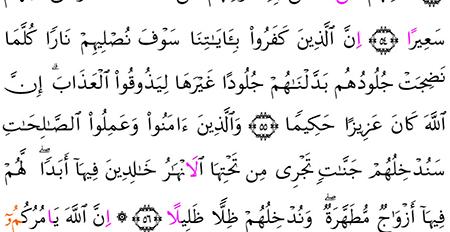 سَعِيرًا ﴿٥٤﴾ إِنَّ ٱلَّذِينَ كَفَرُوا۟ بِـَٔايَـٰتِنَا سَوْفَ نُصْلِيهِمْ نَارًا كُلَّمَا
نَضِجَتْ جُلُودُهُم بَدَّلْنَـٰهُمْ جُلُودًا غَيْرَهَا لِيَذُوقُوا۟ ٱلْعَذَابَ ۗ إِنَّ
ٱللَّهَ كَانَ عَزِيزًا حَكِيمًا ﴿٥٥﴾ وَٱلَّذِينَ ءَامَنُوا۟ وَعَمِلُوا۟ ٱلصَّـٰلِحَـٰتِ
سَنُدْخِلُهُمْ جَنَّـٰتٍ تَجْرِى مِن تَحْتِهَا ٱلْأَنْهَـٰرُ خَـٰلِدِينَ فِيهَآ أَبَدًا ۖ لَّهُمْ
فِيهَآ أَزْوَٰجٌ مُّطَهَّرَةٌ ۖ وَنُدْخِلُهُمْ ظِلًّا ظَلِيلًا ﴿٥٦﴾ ۞ إِنَّ ٱللَّهَ يَامُرُكُمُۥٓ